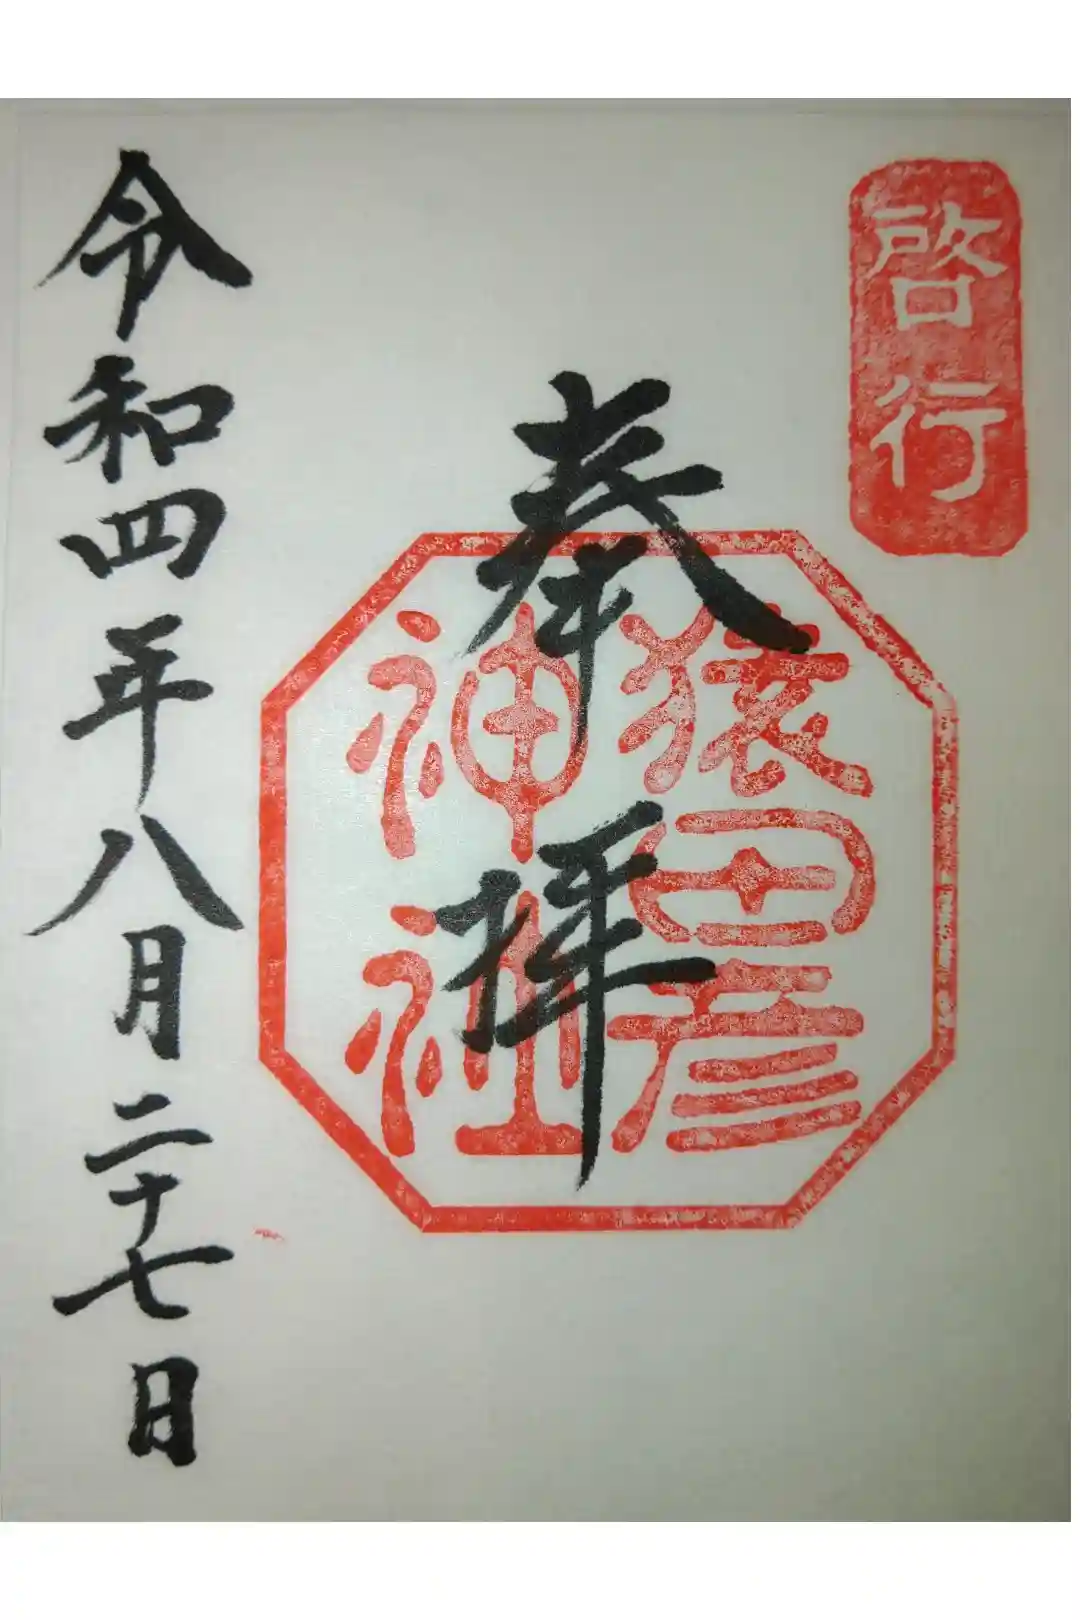 啓行
奉拝
猿田彦
神社
令和四年八月二十七日